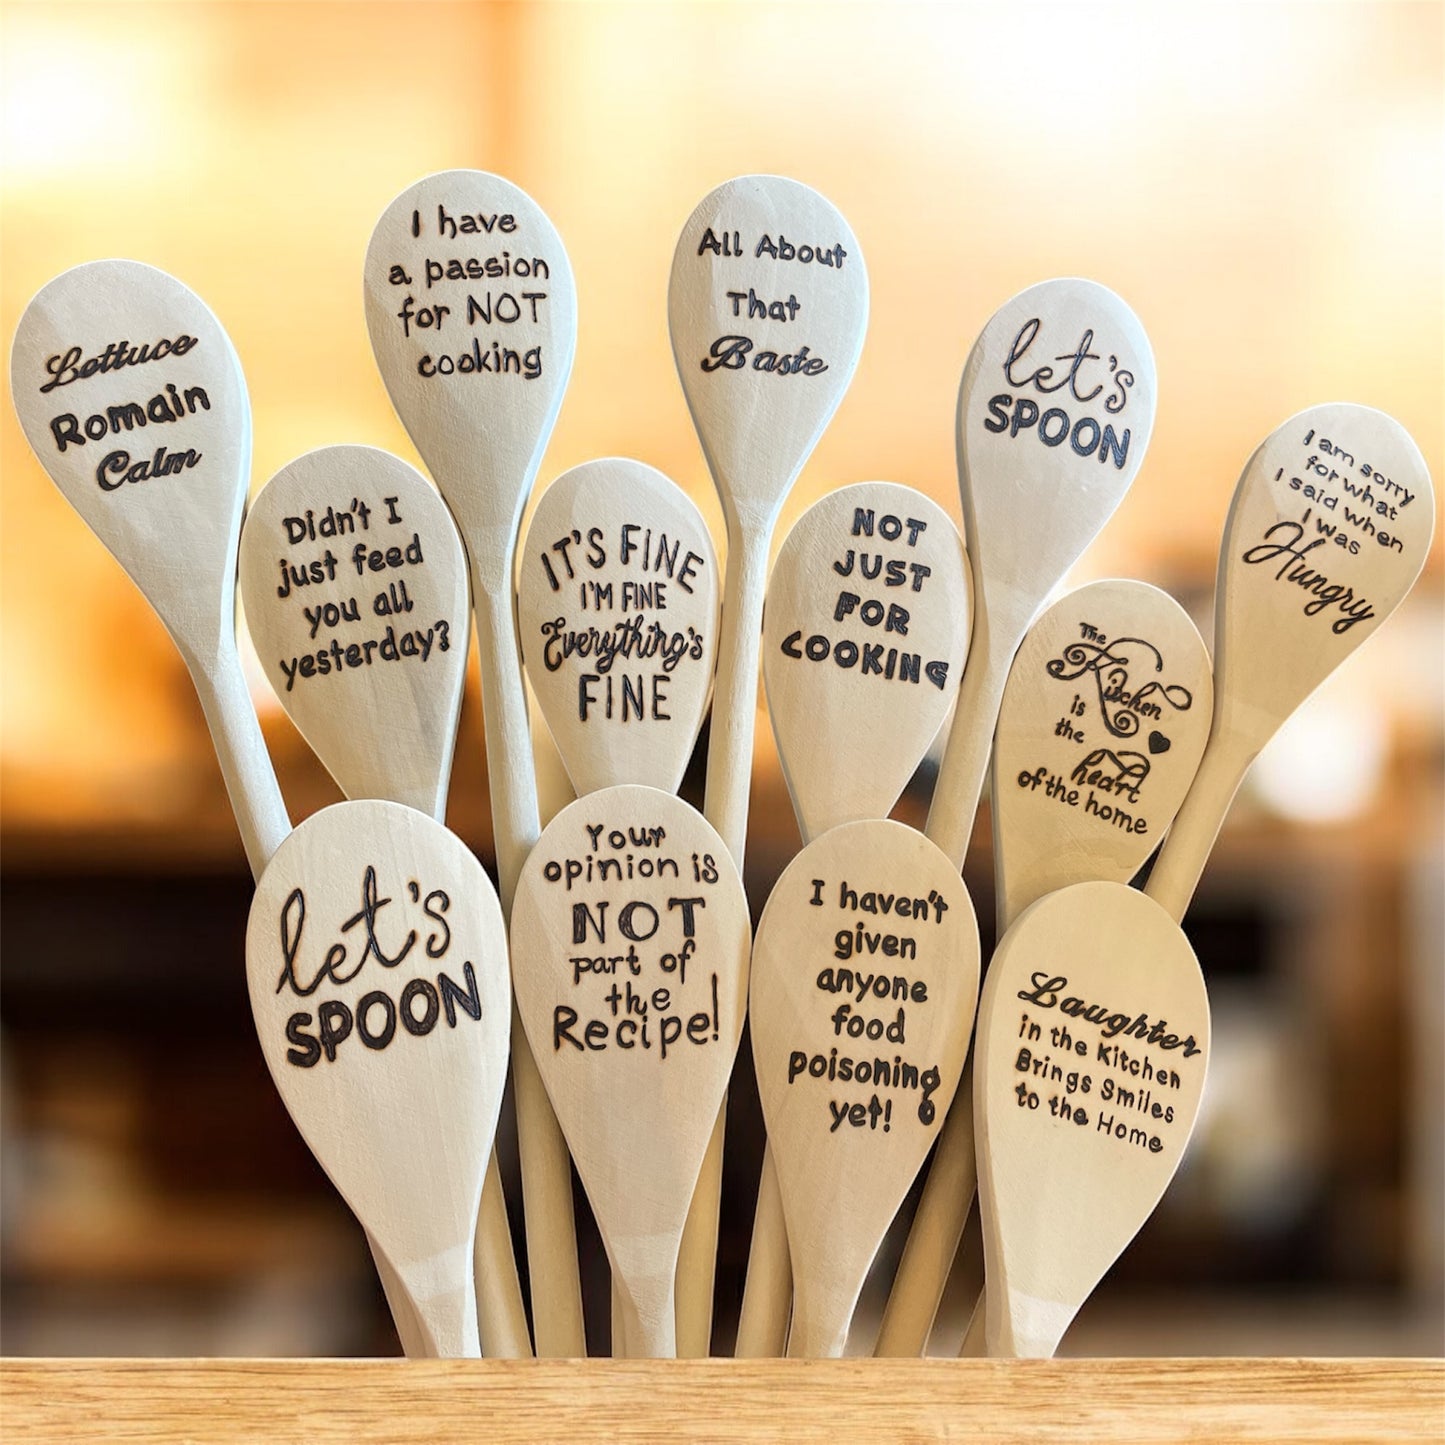 Lettuce
Romain
Calm
I have
a passion
for NOT
cooking
All About
That
Baste
let's
SPOON
I am sorry
for what
I said when
I was
Hungry
Didn't I
just feed
you all
yesterday?
IT'S FINE
I'M FINE
Everything's
FINE
NOT
JUST
FOR
COOKING
The
Kitchen
is
the
heart
of the home
let's
SPOON
Your
opinion is
NOT
part of
the
Recipe!
I haven't
given
anyone
food
poisoning
yet!
Laughter
in the Kitchen
Brings Smiles
to the Home